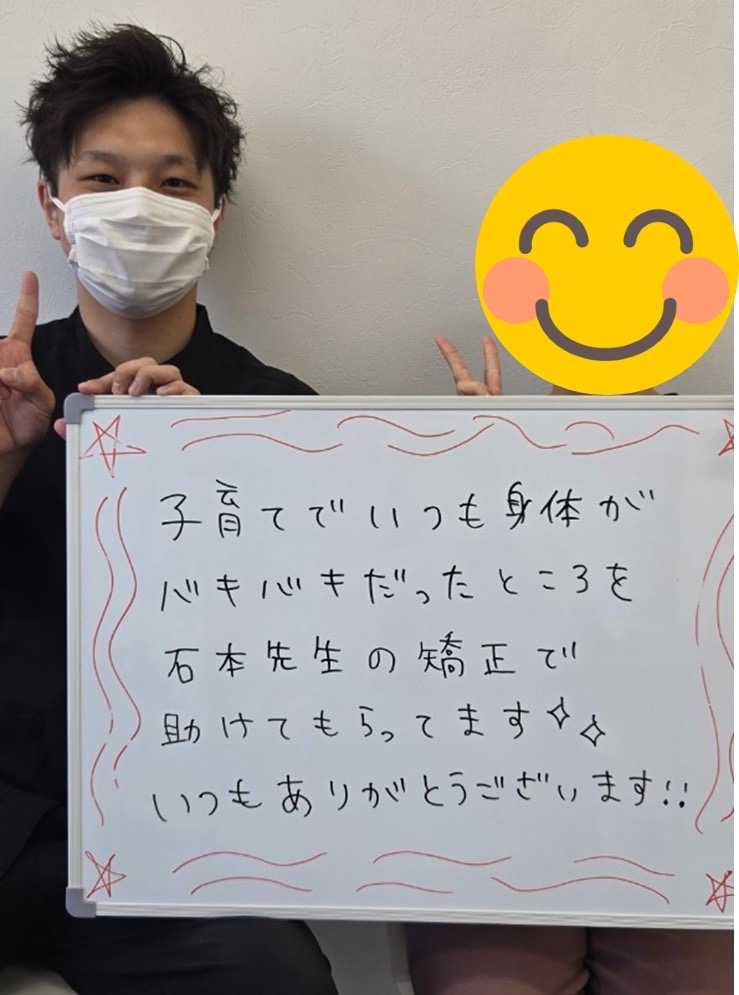 子育てでいつも身体が
バキバキだったところを
石本先生の矯正で
助けてもらってます✧✧
いつもありがとうございます!!